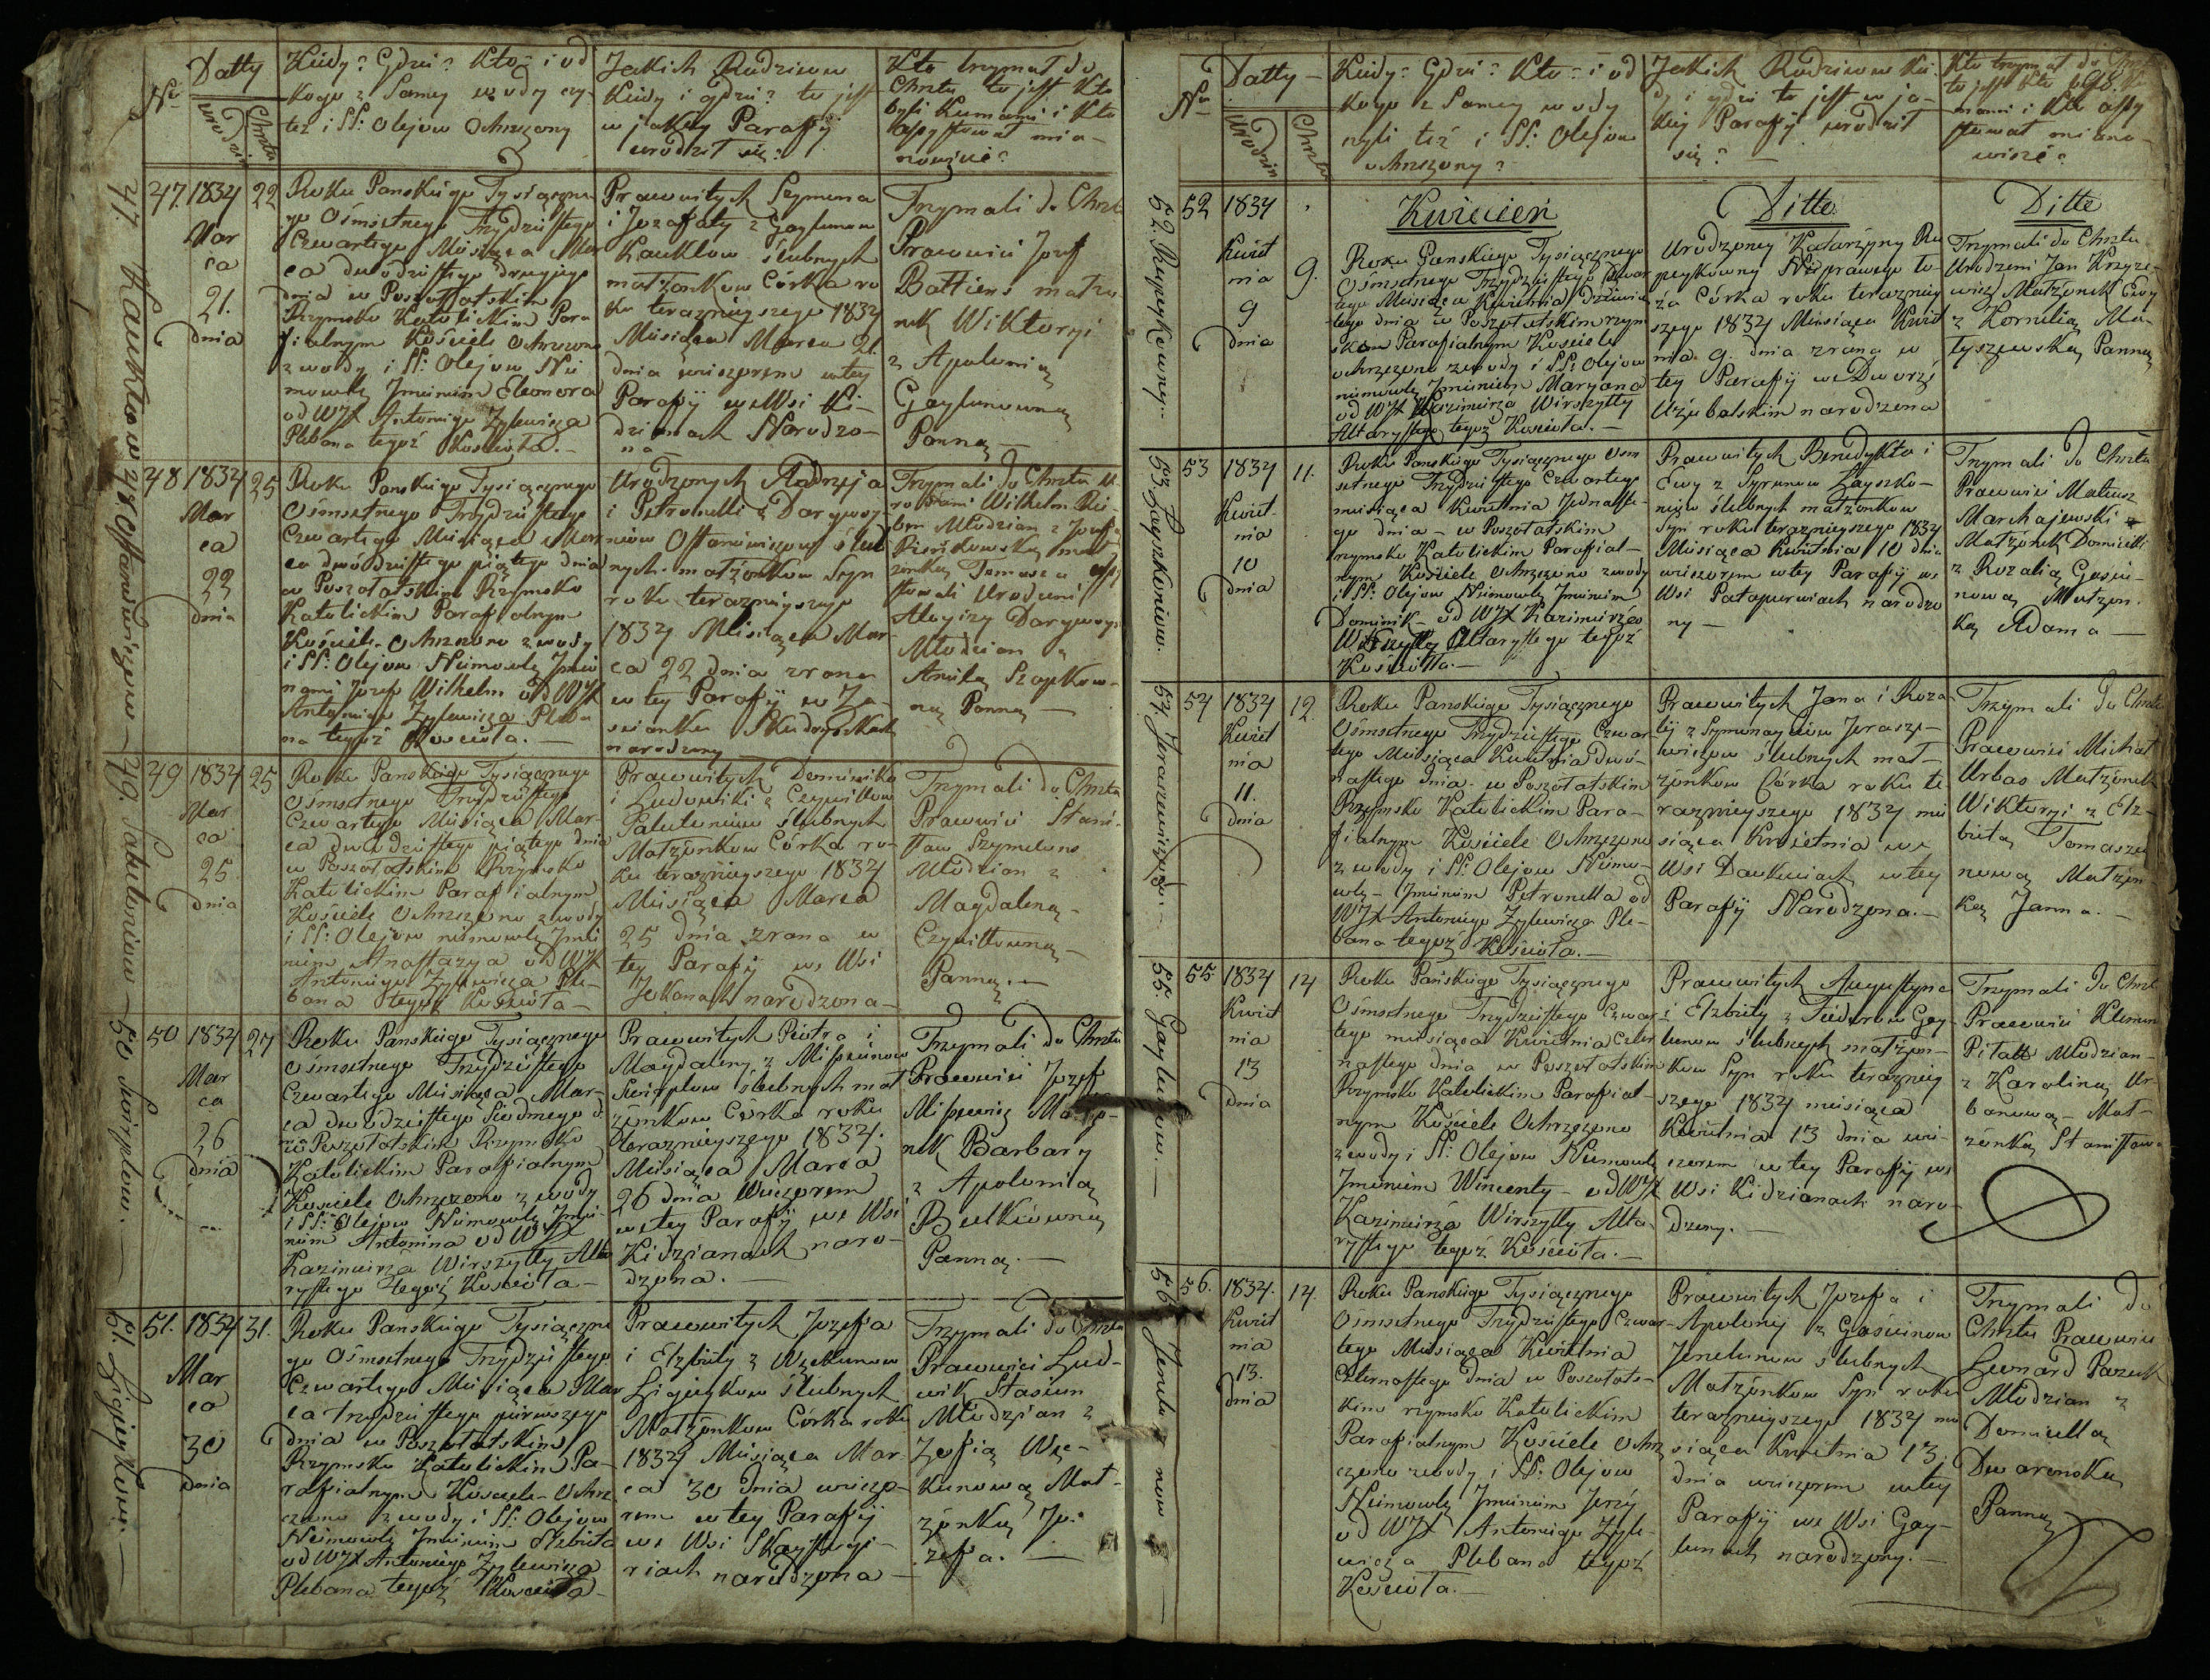 Nr
Datty
urodzin
Chrztu
Kiedy? Gdzie? Kto? i od
kogo z Samey wody czy-
też i SS: Olejow Ochrzczony
Jakich Rodzicow
Kiedy i gdzie? to jest
w jakiey Parafij
urodził się?
Kto trzymał do
Chrztu to jest Kto
byli Kumami i Kto
assystował mia-
nowicie?
47. Kauklow
47. 1834
Mar
ca
21.
dnia
22
Roku Panskiego Tysiączne
go Ośmsetnego Trzydziestego
Czwartego Miesiąca Mar
ca dwódziestego drugiego
dnia w Poszołatskim
Rzymsko Katolickim Para
fialnym Kościele Ochrzczono
z wody i SS: Olejow Nie
mowlę Imieniem Eleonora
od WJX Antoniego Zylewicza
Plebana tegoż Kościoła.-
Prawowitych Szymona
i Jozafaty z Gaylunow
Kauklow ślubnych
małżonkow Córka ro
ku teraznieyszego 1834
Miesiąca Marca 21.
dnia wieczorem w tey
Parafij we Wsi Ki-
dzianach Narodzo-
na
Trzymali do Chrztu
Prawowici Jozef
Battiens małżo
nek Wiktoryi
z Apolonią
Gaylunowną
Panną -
48 Ostanowiczow
48 1834
Mar
ca
22
dnia
25
Roku Panskiego Tysiącznego
Ośmsetnego Trzydziestego
Czwartego Miesiąca Mar
ca dwódziestego piątego dnia
w Poszołatskim Rzymsko
Katolickim Parafialnym
Kościele Ochrzczono z wody
i SS: Olejow Niemowlę Imie
nami Jozef Wilhelm od WJX
Antoniego Zylewicza Pleba
na tegoż Kościoła.-
Urodzonych Andrzeja
i Petronelli z Darywoy-
niów Ostanowiczow ślub
nych małżonkow Syn
roku teraznieyszego
1834 Miesiąca Mar-
ca 22 dnia zrana
w tey Parafij w Za-
scianku Skudryszkach
narodzony
Trzymali do Chrztu U
rodzeni Wilhelm
Młodzian z Jozefą
mał
żonką Tomasza assy
stowali Urodzeni
Aloyizy Darywoyn
Młodzian z
Anielą Szapkow-
ną Panną -
49. Satuleniow
49 1834
Mar
ca
25
dnia
25
Roku Panskiego Tysiącznego
Ośmsetnego Trzydziestego
Czwartego Miesiąca Mar-
ca dwódziestego piątego dnia
w Poszołatskim Rzymsko
Katolickim Parafialnym
Kościele Ochrzczono z wody
i SS: Olejow niemowlę Imie
niem Anastazya od WJX
Antoniego Zylewicza Ple-
bana tegoż Kościoła -
Prawowitych Dominika
i Ludowiki z Czywiłlow
Satuleniow ślubnych
Małżonkow Córka ro-
ku teraznieyszego 1834
Miesiąca Marca
25 dnia zrana w
tey Parafij we Wsi
Jekanach narodzona -
Trzymali do Chrztu
Prawowici Stani-
staw Szymeluns
Młodzian z
Magdaleną
Czywiłlowną
Panną.-
50 Swirplow.
50 1834
Mar
ca
26
dnia
27
Roku Panskiego Tysiącznego
Ośmsetnego Trzydziestego
Czwartego Miesiąca Mar-
ca dwódziestego Siodmego d
w Poszołatskim Rzymsko
Katolickim Parafialnym
Kościele Ochrzczono z wody
i SS: Olejow Niemowlę Imie-
niem Antonina od WJX
Kazimierza Wirszyłły Alta
rystego tegoż Kościoła -
Prawowitych Piotra i
Magdaleny z Missiunow
Swirplow ślubnych mał
żonkow Córka roku
teraznieyszego 1834.
Miesiąca Marca
26 dnia Wieczorem
w tey Parafij we Wsi
Kidzianach naro-
dzona.-
Trzymali do Chrztu
Prawowici Jozef
Missiewicz Małżo-
nek Barbary
z Apolonią
Butkiówną
Panną.-
51. Zigieykow.
51. 1834
Mar
ca
30
dnia
31.
Roku Panskiego Tysiączne
go Ośmsetnego Trzydziestego
Czwartego Miesiąca Mar
ca trzydziestego pierwszego
dnia w Poszołatskim
Rzymsko Katolickim Pa-
rafialnym Kościele Ochrz
czono z wody i SS: Olejow
Niemowlę Imieniem Elzbieta
od WJX Antoniego Zylewicza
Plebana tegoż Kościoła -
Prawowitych Jozefa
i Elzbiety z Wyckunow
Zigieykow ślubnych
Małżonkow Córka roku
1834 Miesiąca Mar-
ca 30 dnia wieczo-
rem w tey Parafij
we Wsi Skaystgi-
riach narodzona -
Trzymali do Chrztu
Prawowici Lud-
wik Stasiun
Młodzian z
Zofią Wyc-
kunową Mał-
żonką Jo-
zefa.-
Nr
Datty -
Urodzin
Chrztu
Kiedy? Gdzie? Kto? i od
kogo z Samey wody
czyli też i SS: Olejow
ochrzczony?
Jakich Rodzicow Kie
dy i gdzie to jest w ja-
kiey Parafij urodził
się? -
Kto trzymał do Chrztu
to jest Kto byli Ku-
mami i Kto assy
stował miano-
wicie?
52. Rupeykowney.
52 1834
Kwiet
nia
9
dnia
9.
Kwiecień
Roku Panskiego Tysiącznego
Ośmsetnego Trzydziestego Czwar
tego Miesiąca Kwietnia dziewią
tego dnia w Poszołatskim rzym
skim Parafialnym Kościele
ochrzczono z wody i SS: Olejow
niemowlę Imieniem Maryana
od WJX Kazimierza Wirszyłły
Altarystego tegoż Kościoła.-
Ditto
Urodzoney Katarzyny Ru
peykowny Nieprawego ło-
ża Córka roku terazniey
szego 1834 Miesiąca Kwiet
nia 9. dnia zrana w
tey Parafij we Dworze
Użubalskim narodzona
Ditto
Trzymali do Chrztu
Urodzeni Jan Krzyże-
wicz Małżonek Ewy
z Kornelią Ma-
tyszewską Panną
53. Zayszkoniow.
53 1834
Kwiet-
nia
10
dnia
11.
Roku Panskiego Tysiącznego Ośm
setnego Trzydziestego Czwartego
miesiąca Kwietnia Jednaste-
go dnia - w Poszołatskim
rzymsko Katolickim Parafial-
nym Kościele Ochrzczono z wody
i SS: Olejow Niemowlę Imieniem
Dominik - od WJX Kazimierza
Wirszyłły Altarystego tegoż
Kościoła.-
Prawowitych Benedykta i
Ewy z Syrunow Zayszko-
niow ślubnych małżonkow
Syn roku teraznieyszego 1834
Miesiąca Kwietnia 10 dnia
wieczorem w tey Parafij we
Wsi Patapurwiach narodzo
ny -
Trzymali do Chrztu
Prawowici Mateusz
Marchajewski
Małżonek Domicelli
z Rozalią Gasiu-
nową Małżon-
ką Adama -
54. Jeraszewiczow.-
54 1834
Kwiet
nia
11.
dnia
12.
Roku Panskiego Tysiącznego
Ośmsetnego Trzydziestego Czwar
tego Miesiąca Kwietnia dwu-
nastego dnia w Poszołatskim
Rzymsko Katolickim Para-
fialnym Kościele Ochrzczono
z wody i SS: Olejow Niemo-
wlę - Imieniem Petronella od
WJX Antoniego Zylewicza Ple-
bana tegoż Kościoła.-
Prawowitych Jana i Roza
lij z Szymonayciow Jerasze-
wiczow ślubnych mał-
żonkow Córka roku te
raznieyszego 1834 mie
siąca Kwietnia we
Wsi Daukniach w tey
Parafij Narodzona.-
Trzymali do Chrztu
Prawowici Michał
Urbas Małżonek
Wiktoryi z Elz-
bietą Tomasze
nową Małżon
ką Janna.-
55. Gaylunow.-
55 1834
Kwiet
nia
13
dnia
14
Roku Pańskiego Tysiącznego
Ośmsetnego Trzydziestego Czwar
tego miesiąca Kwietnia Czter
nastego dnia w Poszołatskim
Rzymsko Katolickim Parafial-
nym Kościele Ochrzczono
z wody i SS: Olejow Niemowlę
Imieniem Wincenty - od WJX
Kazimierza Wirszyłły Alta-
rystego tegoż Kościoła.-
Prawowitych Augustyna
i Elzbiety z Fiedorow Gay-
lunow ślubnych małżon-
kow Syn roku terazniey
szego 1834 miesiąca
Kwietnia 13 dnia wie-
czorem w tey Parafij we
Wsi Kidzianach naro-
dzony.-
Trzymali do Chrztu
Prawowici Klemens
Pitatt Młodzian-
z Karoliną Ur-
banową - Mał-
żonką Stanisława
56 Jenelunow
56. 1834.
Kwiet
nia
13.
dnia
14.
Roku Panskiego Tysiącznego
Ośmsetnego Trzydziestego Czwar-
tego Miesiąca Kwietnia
Czternastego dnia w Poszołats-
kim rzymsko Katolickim
Parafialnym Kościele Ochrz
czono z wody i SS: Olejow
Niemowlę Imieniem Jerzy
od WJX Antoniego Zyle-
wicza Plebana tegoż
Kościoła.-
Prawowitych Jozefa i
Apolonij z Gasiunow
Jenelunow ślubnych
Małżonkow Syn roku
teraznieyszego 1834 mie
siąca Kwietnia 13
dnia wieczorem w tey
Parafij we Wsi Gay-
lunach narodzony.-
Trzymali do
Chrztu Prawowici
Leonard Pazuk
Młodzian z
Domicellą
Dwaronską
Panną